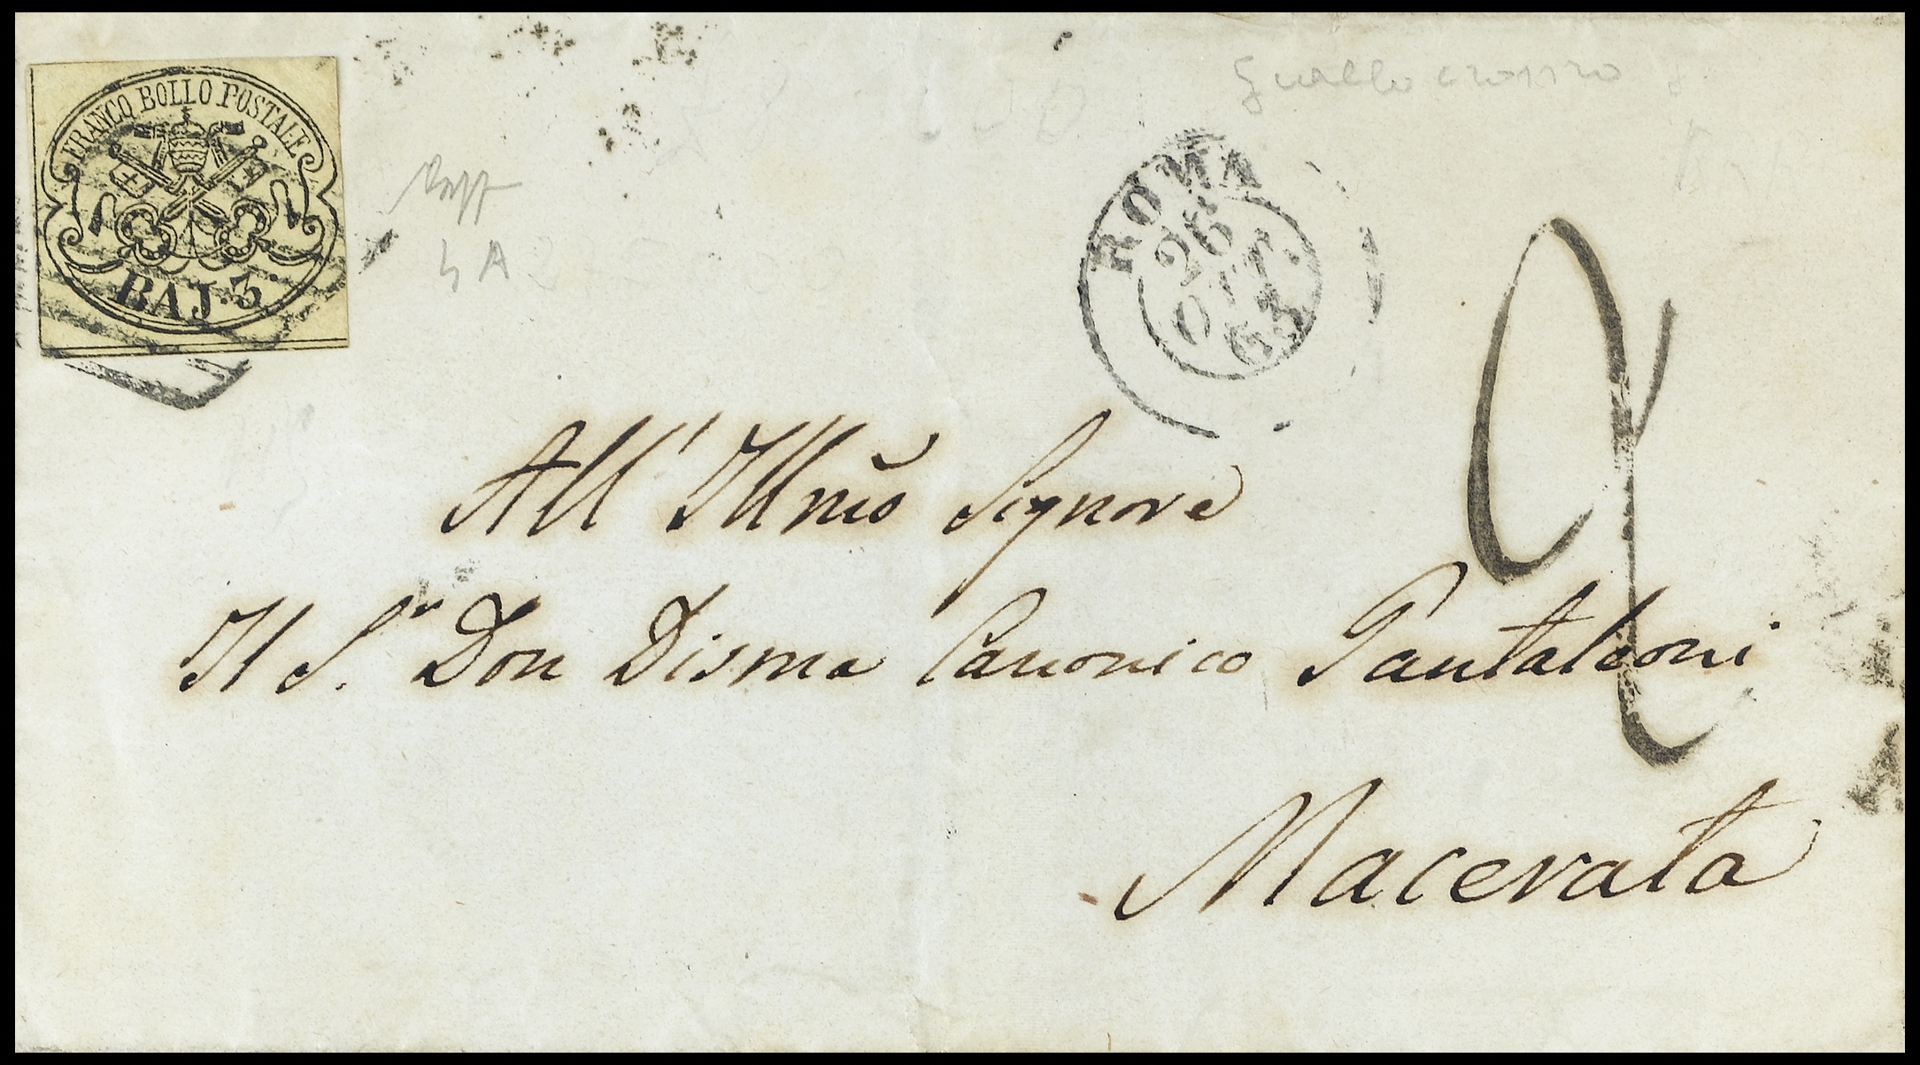 FRANCO BOLLO POSTALE
BAJ. 3.
4A
ROMA
26
OTT.
63
2
All' Illmo Signore
Il Sr. Don Disma Canonico Pantaleoni
Macerata